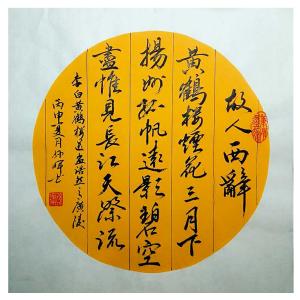 故人西辭
黃鶴楼煙花三月下
揚州孤帆遠影碧空
盡惟見長江天際流
李白黃鶴楼送孟浩然之廣陵
丙申夏月